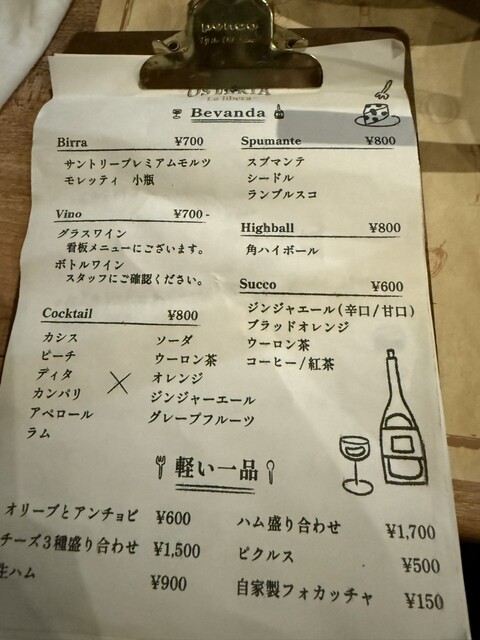 OSTERIA
La libera
Bevanda
Birra ¥700
サントリープレミアムモルツ
モレッティ 小瓶
Vino ¥700-
グラスワイン
看板メニューにございます。
ボトルワイン
スタッフにご確認ください。
Spumante ¥800
スプマンテ
シードル
ランブルスコ
Highball ¥800
角ハイボール
Succo ¥600
ジンジャエール(辛口/甘口)
ブラッドオレンジ
ウーロン茶
コーヒー/紅茶
Cocktail ¥800
カシス ソーダ
ピーチ ウーロン茶
ディタ × オレンジ
カンパリ ジンジャーエール
アペロール グレープフルーツ
ラム
軽い一品
オリーブとアンチョビ ¥600
チーズ3種盛り合わせ ¥1,500
生ハム ¥900
ハム盛り合わせ ¥1,700
ピクルス ¥500
自家製フォカッチャ ¥150